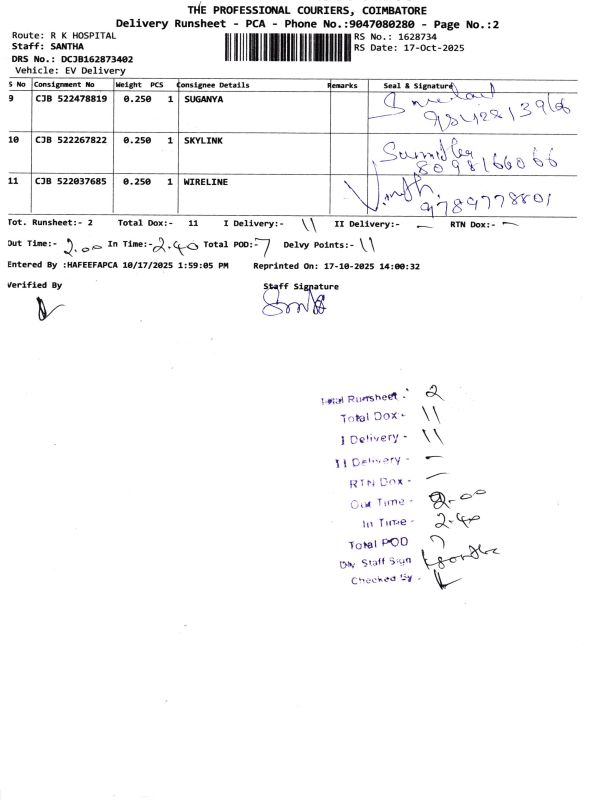 THE PROFESSIONAL COURIERS, COIMBATORE
Delivery Runsheet - PCA - Phone No.:9047080280 - Page No.:2
Route: R K HOSPITAL
Staff: SANTHA
DRS No.: DCJB162873402
Vehicle: EV Delivery
RS No.: 1628734
RS Date: 17-Oct-2025
S No Consignment No Weight PCS Consignee Details Remarks Seal & Signature
9 CJB 522478819 0.250 1 SUGANYA
10 CJB 522267822 0.250 1 SKYLINK
8098166066
11 CJB 522037685 0.250 1 WIRELINE
9789778801
Tot. Runsheet:- 2 Total Dox:- 11 I Delivery:- 11 II Delivery:- — RTN Dox:- —
Out Time:- 2.00 In Time:- 2.40 Total POD:- 7 Delvy Points:- 11
Entered By :HAFEEFAPCA 10/17/2025 1:59:05 PM Reprinted On: 17-10-2025 14:00:32
Verified By Staff Signature
Total Runsheet : 2
Total Dox - 11
I Delivery - 11
II Delivery - —
RTN Dox - —
Out Time - 2.00
In Time - 2.40
Total POD 7
Dly Staff Sign
Checked By -